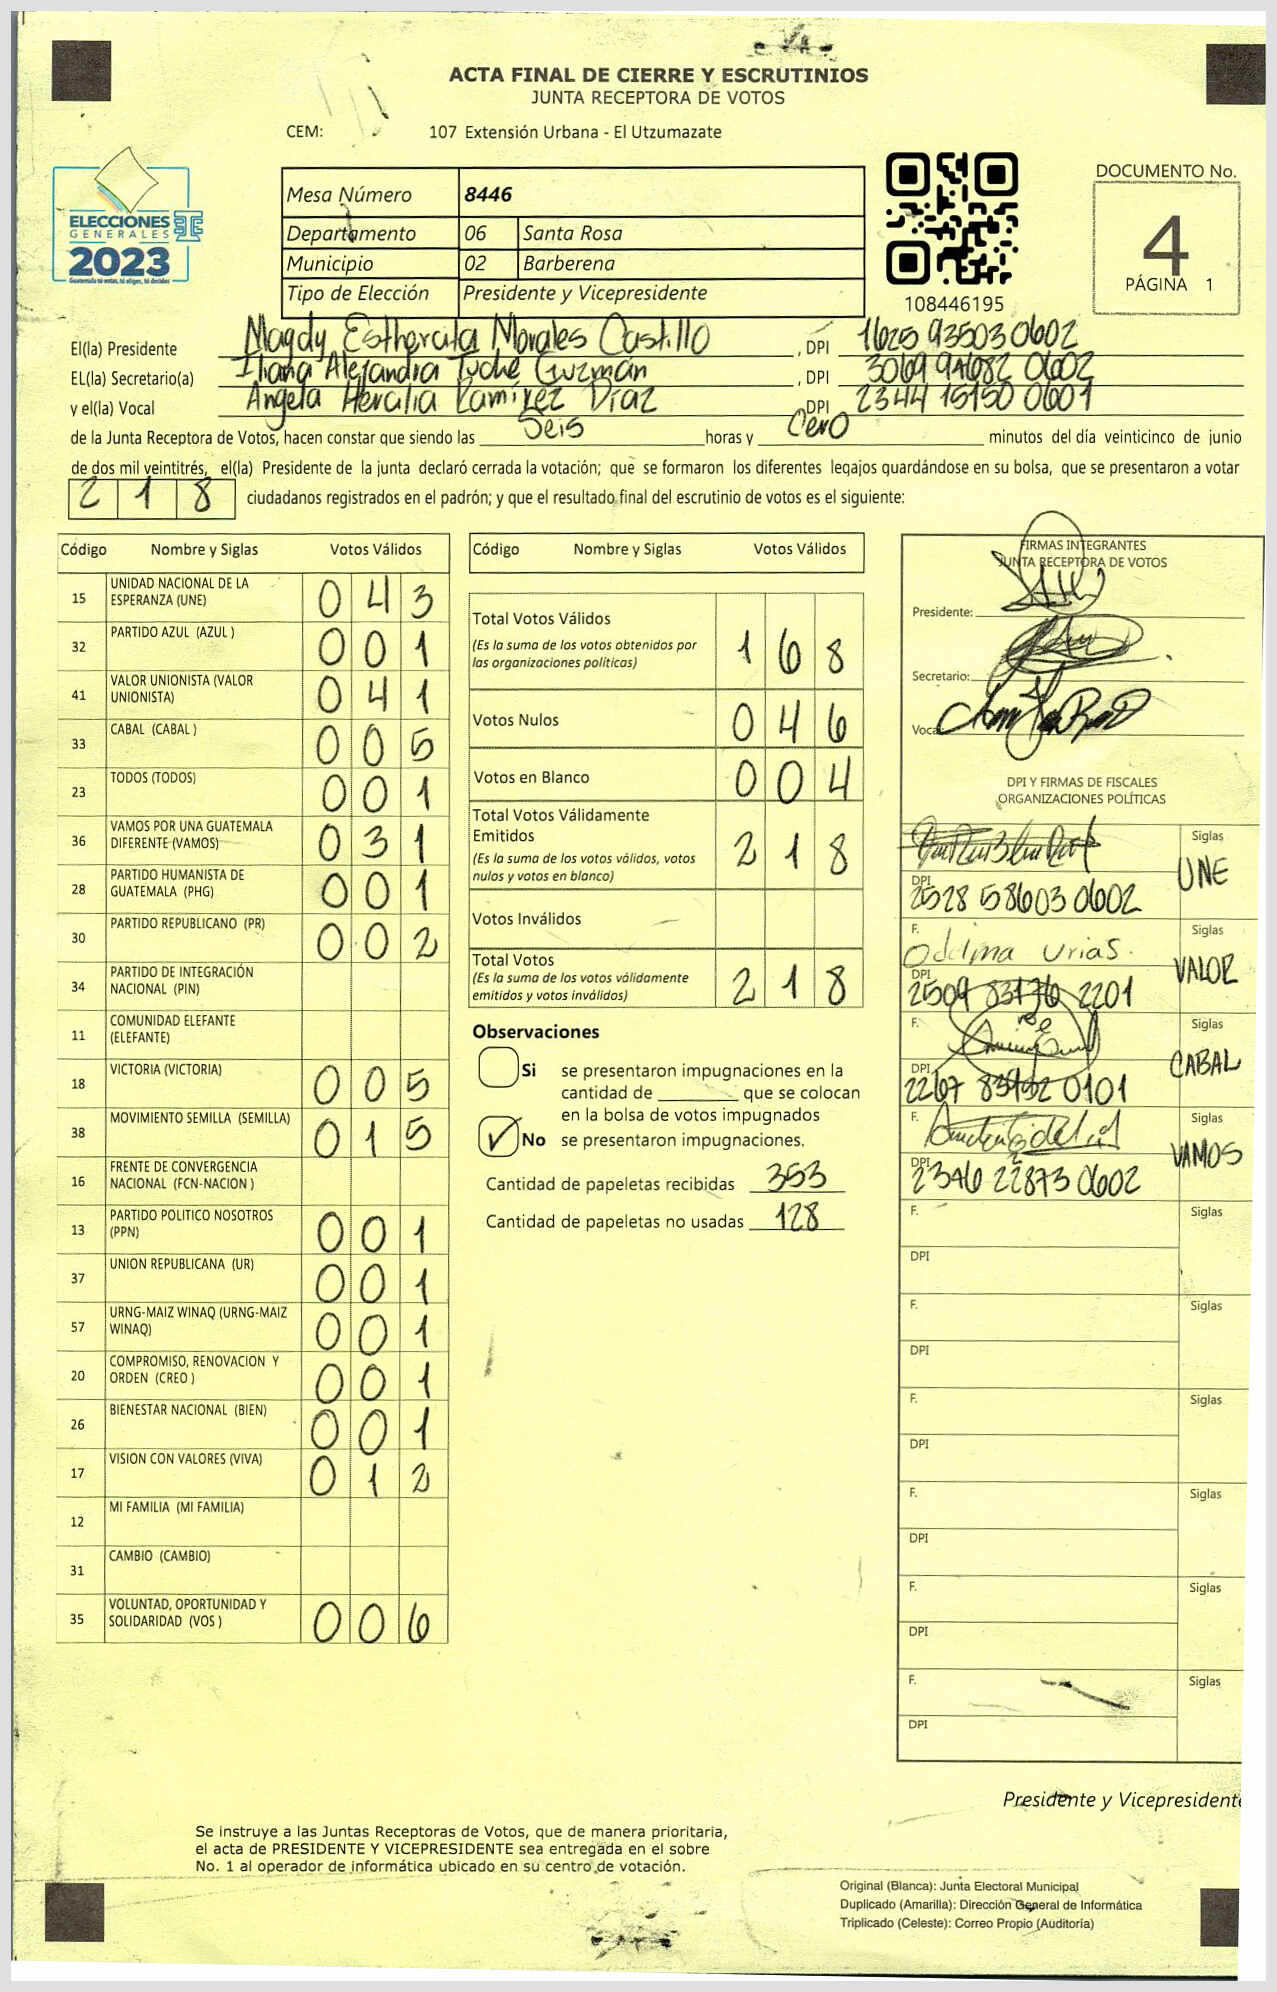 ACTA FINAL DE CIERRE Y ESCRUTINIOS
JUNTA RECEPTORA DE VOTOS
CEM: 107 Extensión Urbana - El Utzumazate
ELECCIONES
GENERALES
2023
Guatemala tú votas, tú eliges, tú decides
Mesa Número 8446
Departamento 06 Santa Rosa
Municipio 02 Barberena
Tipo de Elección Presidente y Vicepresidente
108446195
DOCUMENTO No.
4
PÁGINA 1
El(la) Presidente Magdy Morales Castillo , DPI 1625 93503 0602
EL(la) Secretario(a) Iliana Alejandra Tuche Guzmán , DPI 3069 94682 0602
y el(la) Vocal Angela Heralia Ramírez Díaz DPI 2344 15150 0601
de la Junta Receptora de Votos, hacen constar que siendo las Seis horas y Cero minutos del día veinticinco de junio
de dos mil veintitrés, el(la) Presidente de la junta declaró cerrada la votación; que se formaron los diferentes legajos guardándose en su bolsa, que se presentaron a votar
218 ciudadanos registrados en el padrón; y que el resultado final del escrutinio de votos es el siguiente:
Código Nombre y Siglas Votos Válidos
15 UNIDAD NACIONAL DE LA ESPERANZA (UNE) 043
32 PARTIDO AZUL (AZUL ) 001
41 VALOR UNIONISTA (VALOR UNIONISTA) 041
33 CABAL (CABAL ) 005
23 TODOS (TODOS) 001
36 VAMOS POR UNA GUATEMALA DIFERENTE (VAMOS) 031
28 PARTIDO HUMANISTA DE GUATEMALA (PHG) 001
30 PARTIDO REPUBLICANO (PR) 002
34 PARTIDO DE INTEGRACIÓN NACIONAL (PIN)
11 COMUNIDAD ELEFANTE (ELEFANTE)
18 VICTORIA (VICTORIA) 005
38 MOVIMIENTO SEMILLA (SEMILLA) 015
16 FRENTE DE CONVERGENCIA NACIONAL (FCN-NACION )
13 PARTIDO POLITICO NOSOTROS (PPN) 001
37 UNION REPUBLICANA (UR) 001
57 URNG-MAIZ WINAQ (URNG-MAIZ WINAQ) 001
20 COMPROMISO, RENOVACION Y ORDEN (CREO ) 001
26 BIENESTAR NACIONAL (BIEN) 001
17 VISION CON VALORES (VIVA) 012
12 MI FAMILIA (MI FAMILIA)
31 CAMBIO (CAMBIO)
35 VOLUNTAD, OPORTUNIDAD Y SOLIDARIDAD (VOS ) 006
Código Nombre y Siglas Votos Válidos
Total Votos Válidos 168
(Es la suma de los votos obtenidos por
las organizaciones políticas)
Votos Nulos 046
Votos en Blanco 004
Total Votos Válidamente
Emitidos 218
(Es la suma de los votos válidos, votos
nulos y votos en blanco)
Votos Inválidos
Total Votos 218
(Es la suma de los votos válidamente
emitidos y votos inválidos)
Observaciones
Si se presentaron impugnaciones en la
cantidad de ________ que se colocan
en la bolsa de votos impugnados
✓ No se presentaron impugnaciones.
Cantidad de papeletas recibidas 353
Cantidad de papeletas no usadas 128
FIRMAS INTEGRANTES
JUNTA RECEPTORA DE VOTOS
Presidente:
Secretario:
Vocal
DPI Y FIRMAS DE FISCALES
ORGANIZACIONES POLÍTICAS
Siglas UNE
DPI 2528 58603 0602
F. Odelma Urias. Siglas VALOR
DPI 2509 83176 2201
F. Siglas CABAL
DPI 2267 83492 0101
F. Siglas VAMOS
DPI 2346 22873 0602
F. Siglas
DPI
F. Siglas
DPI
F. Siglas
DPI
F. Siglas
DPI
F. Siglas
DPI
F. Siglas
DPI
Presidente y Vicepresidente
Se instruye a las Juntas Receptoras de Votos, que de manera prioritaria,
el acta de PRESIDENTE Y VICEPRESIDENTE sea entregada en el sobre
No. 1 al operador de informática ubicado en su centro de votación.
Original (Blanca): Junta Electoral Municipal
Duplicado (Amarilla): Dirección General de Informática
Triplicado (Celeste): Correo Propio (Auditoría)